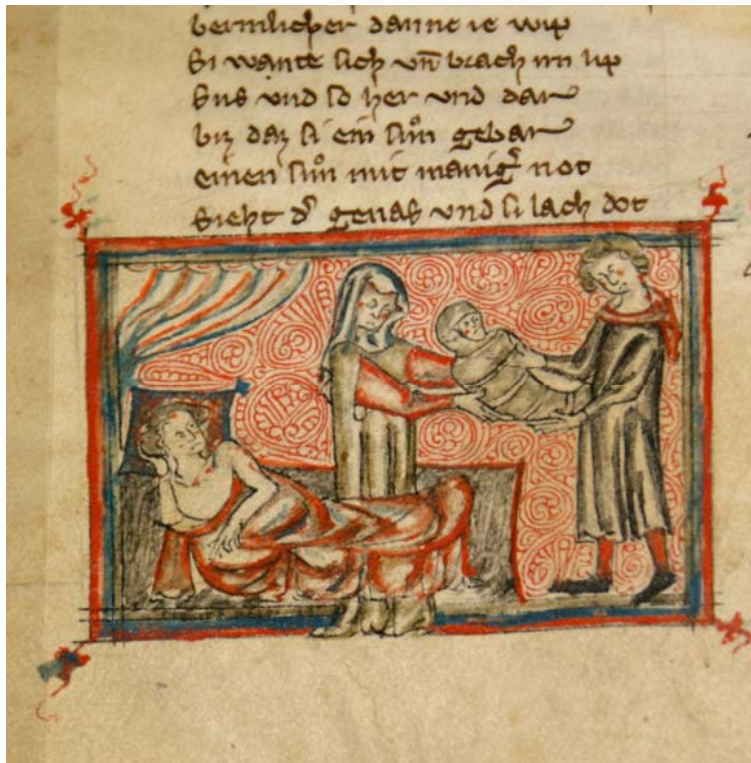 bermlicher danne ie wip
Si wante sich vn̄ brach irn lip
Sus vnd so her vnd dar
biz daz si ein suͦn gebar
einen suͦn mit manig͛ not
Sieht d͛ genas vnd si lach dot